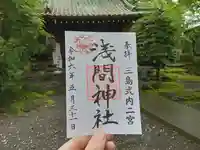 奉拝 三島式内二宮
浅間神社
令和六年 五月三十一日